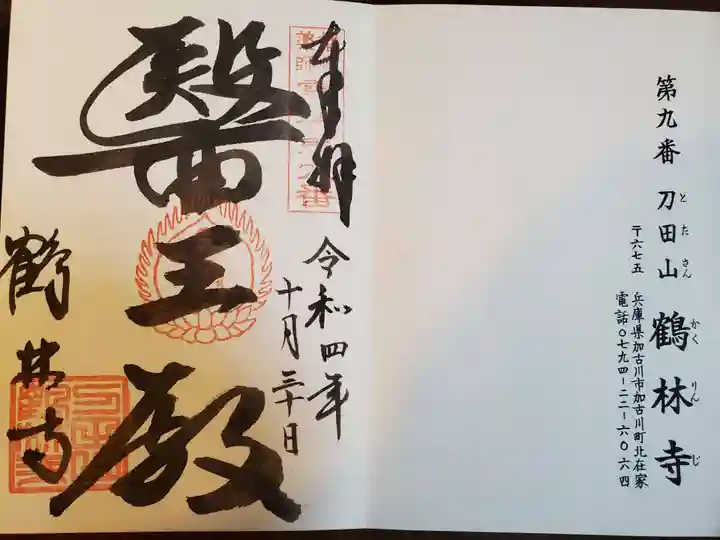 第九番 刀田山 鶴林寺
とたさん かくりんじ
〒六七五 兵庫県加古川市加古川町北在家
電話〇七九四-二二-六〇六四
奉拝
令和四年
十月三十日
醫王殿
鶴林寺